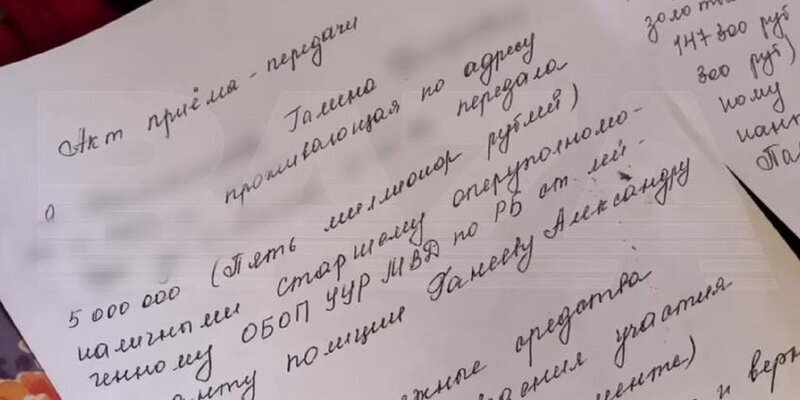 Акт приёма - передачи
Галина
проживающая по адресу
передала
5 000 000 (Пять миллионов рублей)
наличными старшему оперуполномо-
ченному ОБОП УУР МВД по РБ ст. лей-
анту полиции Ганееву Александру
ежные средства
участия
и верн
золо
147 300 руб
300 руб)
кому
нани
Па